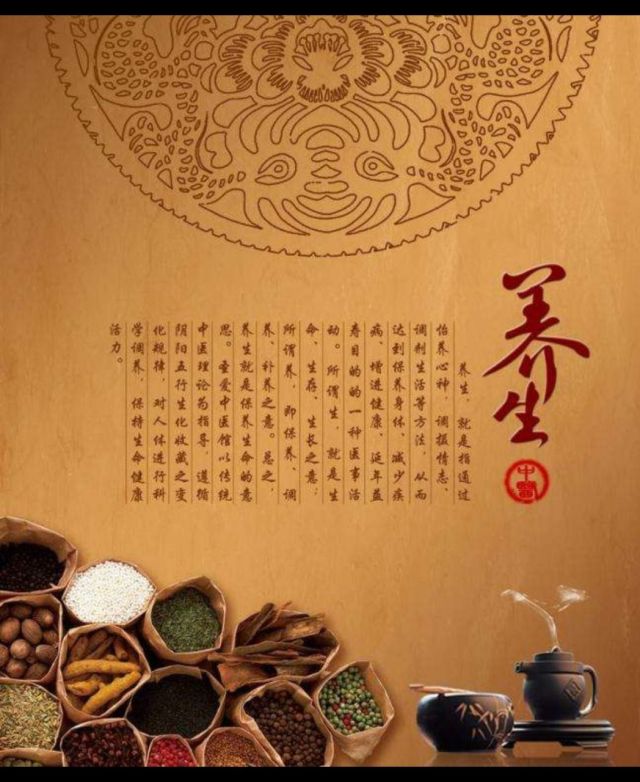 养生
中醫
养生，就是指通过
怡养心神，调摄情志、
调剂生活等方法，从而
达到保养身体、减少疾
病、增进健康、延年益
寿目的的一种医事活
动。所谓生，就是生
命、生存、生长之意；
所谓养，即保养、调
养、补养之意。总之，
养生就是保养生命的意
思。圣爱中医馆以传统
中医理论为指导，遵循
阴阳五行生化收藏之变
化规律，对人体进行科
学调养，保持生命健康
活力。